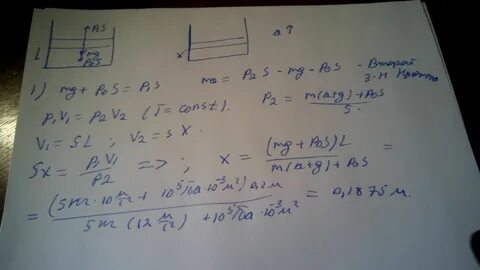 L P₁S mg P₀S x a↑
1) mg + P₀S = P₁S ma = P₂S - mg - P₀S - Второй з-н Ньютона
P₁V₁ = P₂V₂ (T = const). P₂ = (m(a+g) + P₀S)/S.
V₁ = SL ; V₂ = S X.
SX = P₁V₁/P₂ => ; x = (mg + P₀S)L/(m(a+g) + P₀S) =
= (5кг·10 м/с² + 10⁵ Па·10⁻³м²) 0,2м/(5кг (12 м/с²) + 10⁵ Па·10⁻³м²) = 0,1875 м.